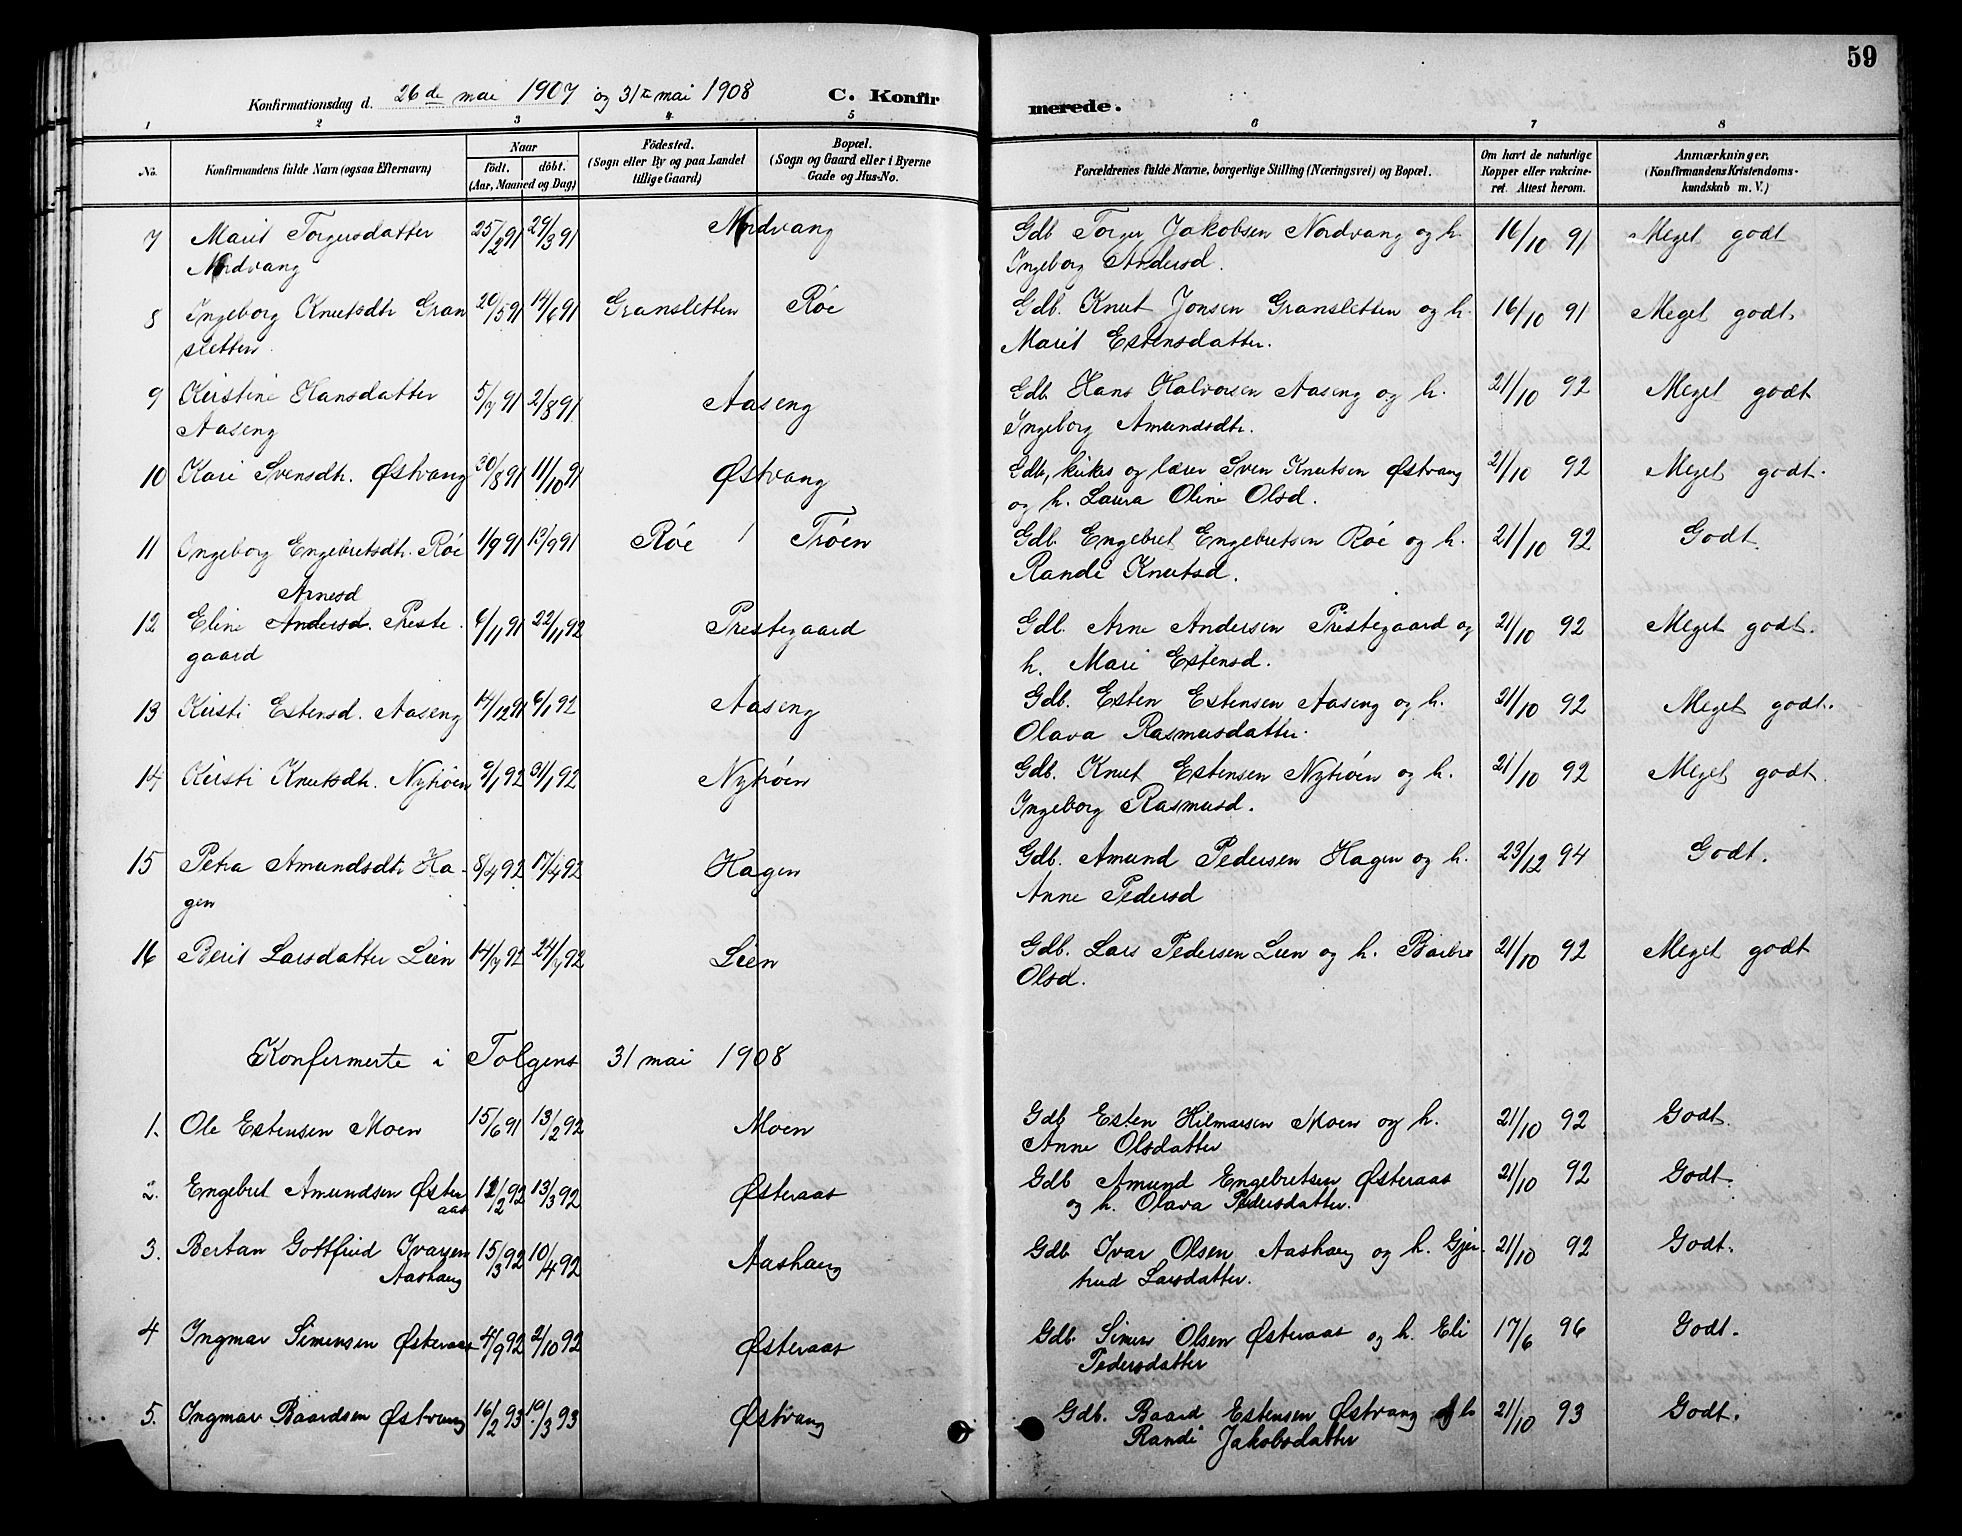 59
Konfirmationsdag d. 26de mai 1907 og 31te mai 1908 C. Konfirmerede.
1 2 3 4 5 6 7 8
No. Konfirmandens fulde Navn (ogsaa Efternavn) Naar født. døbt. (Aar, Maaned og Dag) Födested. (Sogn eller By og paa Landet tillige Gaard) Bopæl. (Sogn og Gaard eller i Byerne Gade og Hus-No. Forældrenes fulde Navne, borgerlige Stilling (Næringsvei) og Bopæl. Om havt de naturlige Kopper eller vakcineret. Attest herom. Anmærkninger. (Konfirmandens Kristendomskundskab m. V.)
7 Marit Torgersdatter 25/2 91 29/3 91 Nordvang Gdb Torger Jakobsen Nordvang og h. 16/10 91 Meget godt
Nordvang Ingeborg Andersd.
8 Ingeborg Knutsdtr Gran 20/5 91 14/6 91 Gransletten Røe Gdb. Knut Jonsen Gransletten og h. 16/10 91 Meget godt.
sletten. Marit Estensdatter.
9 Kirstine Hansdatter 5/7 91 2/8 91 Aaseng Gdb. Hans Halvorsen Aaseng og h. 21/10 92 Meget godt
Aaseng Ingeborg Amundsdtr.
10 Kari Svensdtr. Østvang 30/8 91 11/10 91 Østvang Gdb, kirkes og lærer Sven Knutsen Østvang 21/10 92 Meget godt.
og h. Laura Oline Olsd.
11 Ingeborg Engebretsdtr. Røe 1/9 91 13/9 91 Røe / Trøen Gdb. Engebret Engebretsen Røe og h. 21/10 92 Godt.
Randi Knutsd.
Arnesd
12 Eline Andersd. Preste 6/11 91 22/11 92 Prestegaard Gdb. Arne Andersen Prestegaard og 21/10 92 Meget godt.
gaard h. Mari Estensd.
13 Kirsti Estensd. Aaseng 14/12 91 6/1 92 Aaseng Gdb. Esten Estensen Aaseng og h. 21/10 92 Meget godt.
Olava Rasmusdatter.
14 Kirsti Knutsdtr. Nytrøen 9/1 92 31/1 92 Nytrøen Gdb. Knut Estensen Nytrøen og h. 21/10 92 Meget godt.
Ingeborg Rasmusd.
15 Petra Amundsdtr Ha- 8/4 92 17/4 92 Hagen Gdb. Amund Pedersen Hagen og h. 23/12 94 Godt.
gen Anne Pedersd
16 Berit Larsdatter Lien 14/7 92 24/7 92 Lien Gdb. Lars Pedersen Lien og h. Barbro 21/10 92 Meget godt
Olsd.
Konfermerte i Tolgens 31 mai 1908
1. Ole Estensen Moen 15/6 91 13/2 92 Moen Gdb Esten Hilmarsen Moen og h. 21/10 92 Godt.
Anne Olsdatter
2. Engebret Amundsen Øster 12/2 92 13/3 92 Østeraas Gdb Amund Engebretsen Østeraas 21/10 92 Godt.
aas og h. Olava Pedersdatter.
3. Bertan Gottfried Ivarsen 15/3 92 10/4 92 Aashaug Gdb Ivar Olsen Aashaug og h. Gjer- 21/10 92 Godt.
Aashaug trud Larsdatter.
4 Ingmar Simensen Østeraas 4/9 92 2/10 92 Østeraas Gdb. Simen Olsen Østeraas og h. Eli 17/6 96 Godt.
Pedersdatter
5. Ingmar Baardsen Østvang 16/2 93 19/3 93 Østvang Gdb. Baard Estensen Østvang og h 21/10 93 Godt.
Randi Jakobsdatter